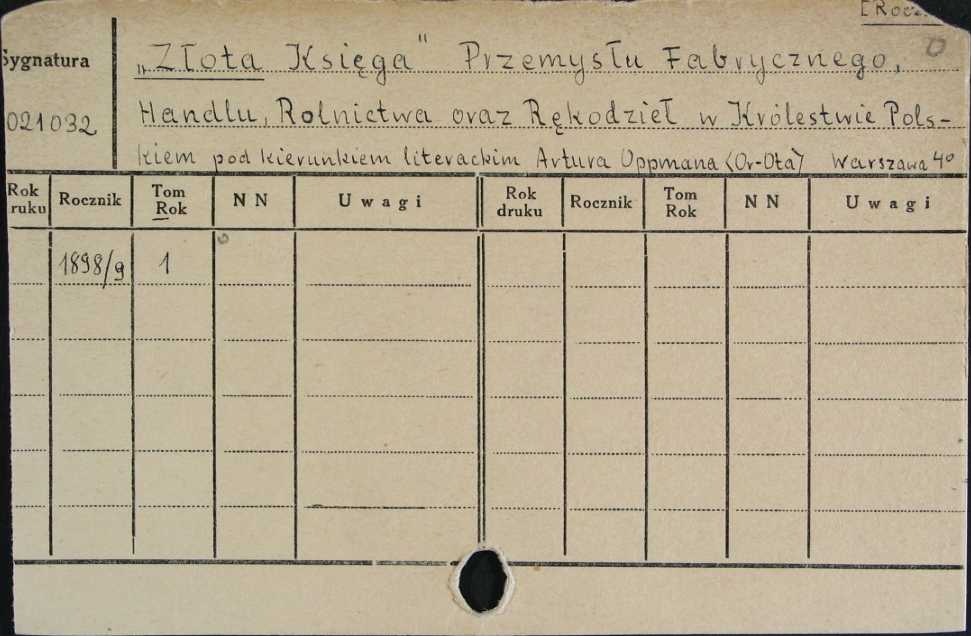 Sygnatura
021032
„Złota Księga" Przemysłu Fabrycznego,
Handlu, Rolnictwa oraz Rękodzieł w Królestwie Pols-
kiem pod kierunkiem literackim Artura Oppmana (Or-Ota) Warszawa 4º
Rok ruku Rocznik Tom Rok NN Uwagi Rok druku Rocznik Tom Rok NN Uwagi
1898/9 1